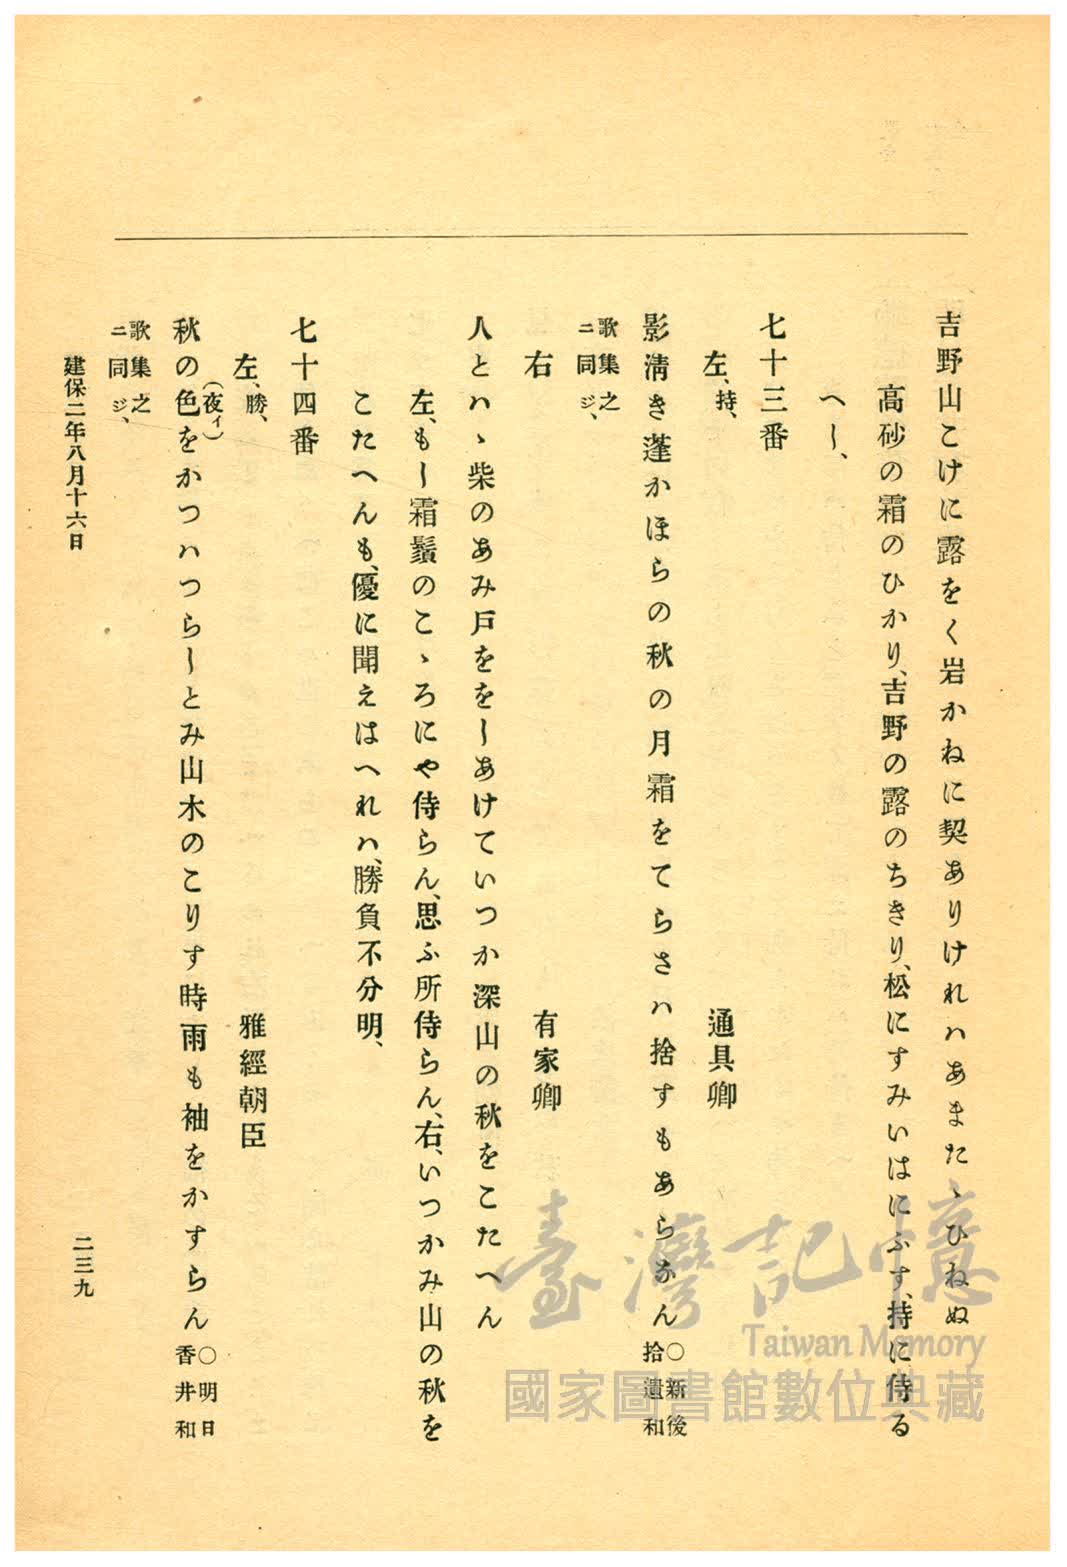 吉野山こけに露をく岩かねに契ありけれハあまたゝひねぬ
高砂の霜のひかり、吉野の露のちきり、松にすみいはにふす、持に侍る
へし、
七十三番
左、持、
通具卿
影淸き蓬かほらの秋の月霜をてらさハ捨すもあらなん○新後拾遺和
歌集之ニ同ジ、
右
有家卿
人とハゝ柴のあみ戸ををしあけていつか深山の秋をこたへん
左、もし霜鬚のこゝろにや侍らん、思ふ所侍らん、右、いつかみ山の秋を
こたへんも、優に聞えはへれハ、勝負不分明、
七十四番
左、勝、
雅經朝臣
(夜イ)
秋の色をかつハつらしとみ山木のこりす時雨も袖をかすらん○明日香井和
歌集之ニ同ジ、
建保二年八月十六日
二三九
臺灣記憶
Taiwan Memory
國家圖書館數位典藏